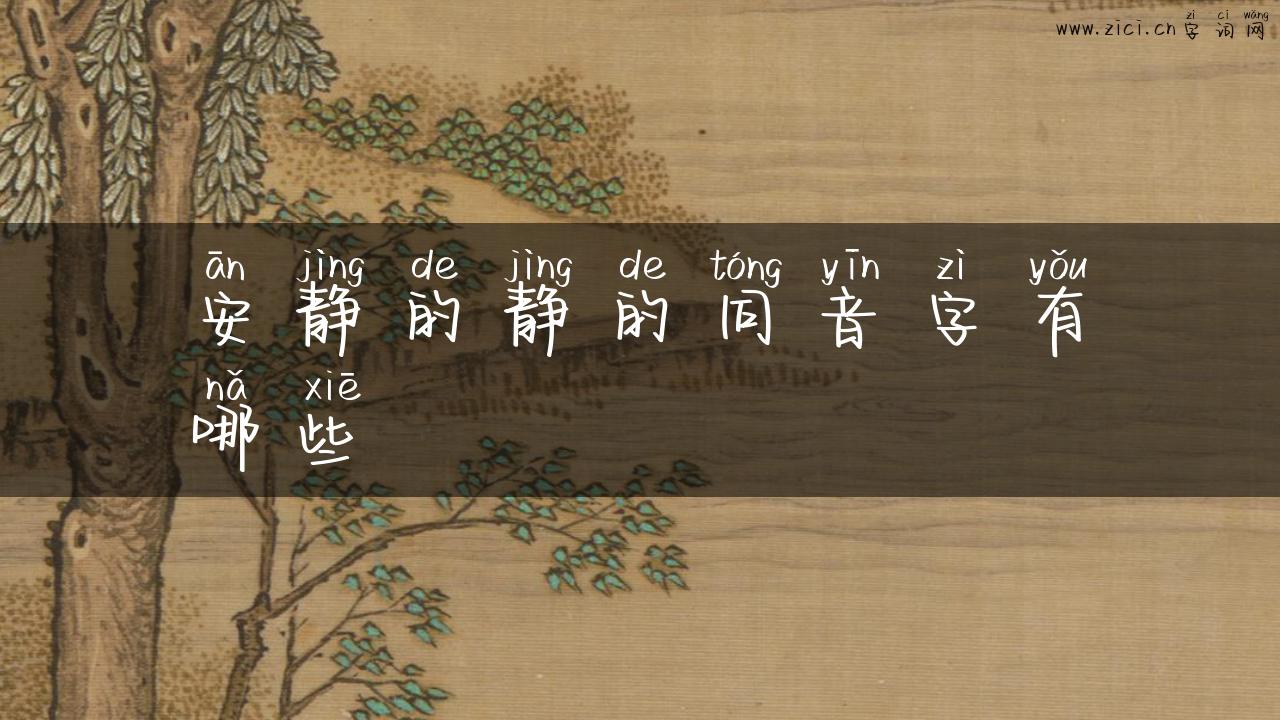 zì cí wǎng
www.zici.cn 字词网
ān jìng de jìng de tóng yīn zì yǒu
安静的静的同音字有
nǎ xiē
哪些